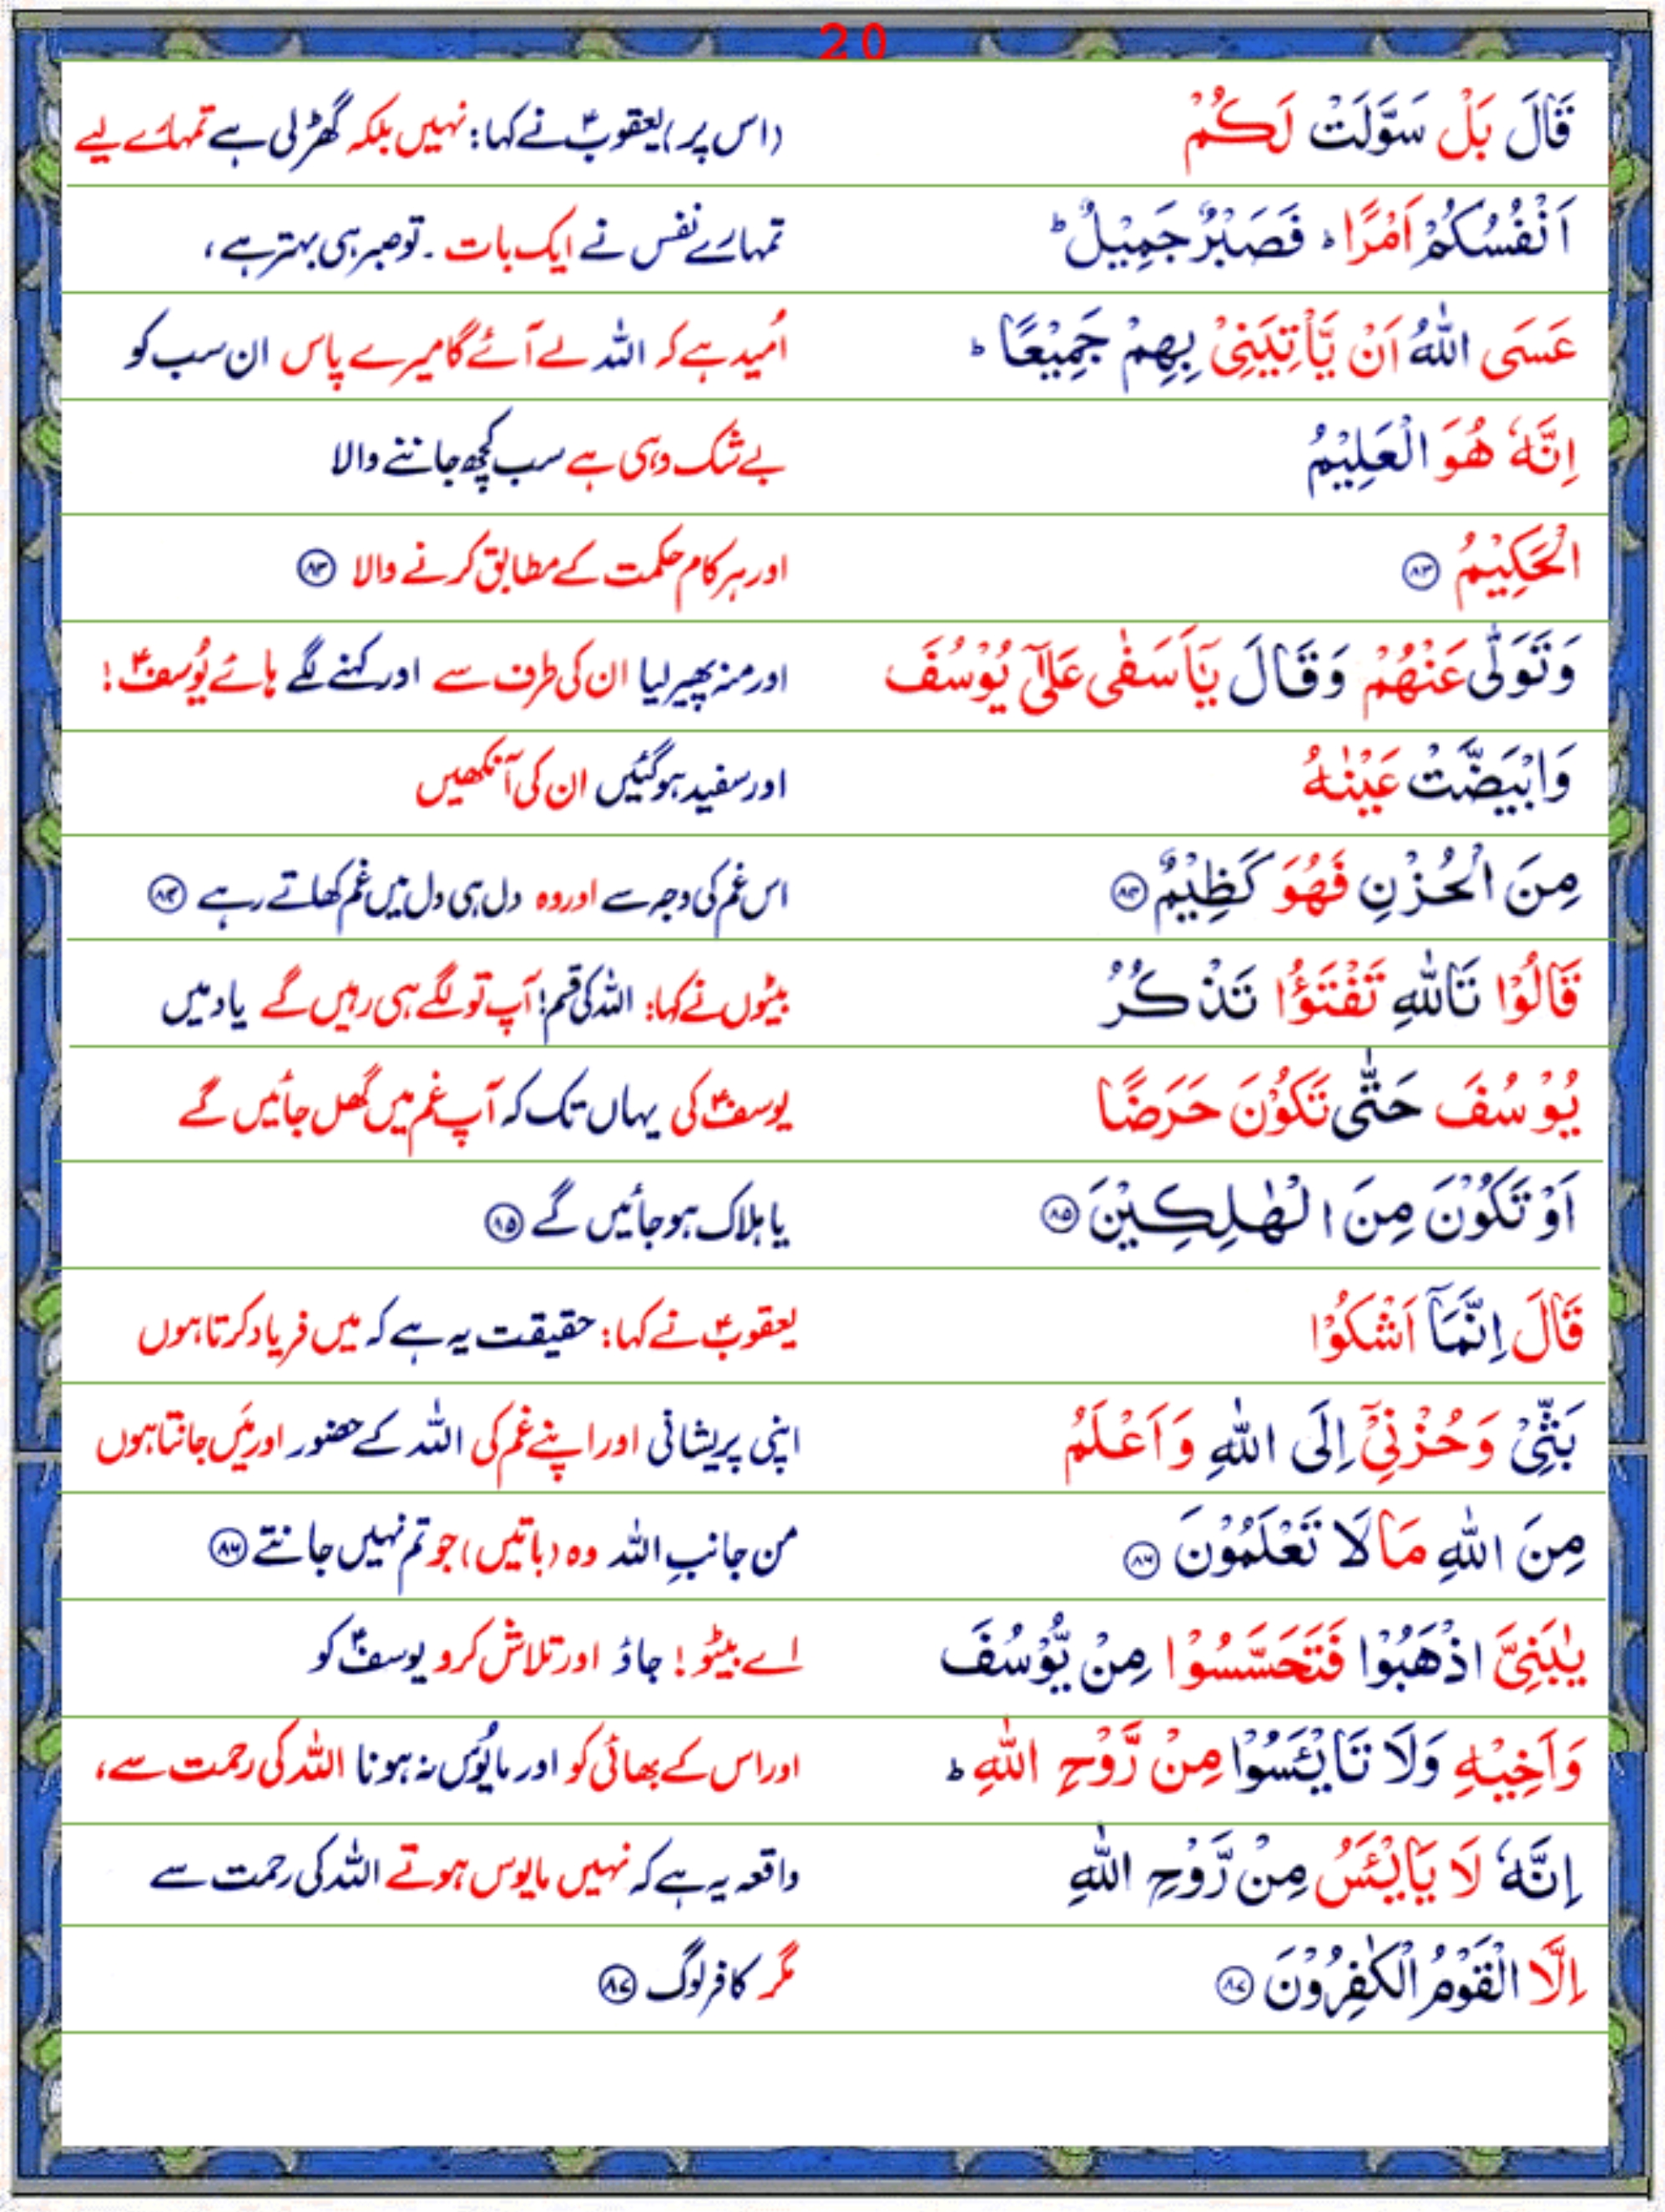 20
قَالَ بَلْ سَوَّلَتْ لَكُمْ (اس پر) یعقوبؑ نے کہا: نہیں بلکہ گھڑ لی ہے تمہارے لیے
اَنْفُسُكُمْ اَمْرًا ؕ فَصَبْرٌ جَمِيْلٌ ؕ تمہارے نفس نے ایک بات ۔ تو صبر ہی بہتر ہے ،
عَسَى اللّٰهُ اَنْ يَّاْتِيَنِيْ بِهِمْ جَمِيْعًا ؕ اُمید ہے کہ اللہ لے آئے گا میرے پاس ان سب کو
اِنَّهٗ هُوَ الْعَلِيْمُ بے شک وہی ہے سب کچھ جاننے والا
الْحَكِيْمُ ۸۳ اور ہر کام حکمت کے مطابق کرنے والا ۸۳
وَتَوَلّٰى عَنْهُمْ وَقَالَ يٰۤاَسَفٰى عَلٰى يُوْسُفَ اور منہ پھیر لیا ان کی طرف سے اور کہنے لگے ہائے یُوسفؑ !
وَابْيَضَّتْ عَيْنٰهُ اور سفید ہو گئیں ان کی آنکھیں
مِنَ الْحُزْنِ فَهُوَ كَظِيْمٌ ۸۴ اس غم کی وجہ سے اور وہ دل ہی دل میں غم کھاتے رہے ۸۴
قَالُوْا تَاللّٰهِ تَفْتَؤُا تَذْكُرُ بیٹوں نے کہا: اللہ کی قسم! آپ تو لگے ہی رہیں گے یاد میں
يُوْسُفَ حَتّٰى تَكُوْنَ حَرَضًا یوسفؑ کی یہاں تک کہ آپ غم میں گھل جائیں گے
اَوْ تَكُوْنَ مِنَ الْهٰلِكِيْنَ ۸۵ یا ہلاک ہو جائیں گے ۸۵
قَالَ اِنَّمَاۤ اَشْكُوْا یعقوبؑ نے کہا: حقیقت یہ ہے کہ میں فریاد کرتا ہوں
بَثِّيْ وَحُزْنِيْۤ اِلَى اللّٰهِ وَاَعْلَمُ اپنی پریشانی اور اپنے غم کی اللہ کے حضور اور میَں جانتا ہوں
مِنَ اللّٰهِ مَا لَا تَعْلَمُوْنَ ۸۶ من جانبِ اللہ وہ (باتیں) جو تم نہیں جانتے ۸۶
يٰبَنِيَّ اذْهَبُوْا فَتَحَسَّسُوْا مِنْ يُّوْسُفَ اے بیٹو ! جاؤ اور تلاش کرو یوسفؑ کو
وَاَخِيْهِ وَلَا تَايْئَسُوْا مِنْ رَّوْحِ اللّٰهِ ؕ اور اس کے بھائی کو اور مایُوس نہ ہونا اللہ کی رحمت سے،
اِنَّهٗ لَا يَايْئَسُ مِنْ رَّوْحِ اللّٰهِ واقعہ یہ ہے کہ نہیں مایوس ہوتے اللہ کی رحمت سے
اِلَّا الْقَوْمُ الْكٰفِرُوْنَ ۸۷ مگر کافر لوگ ۸۷